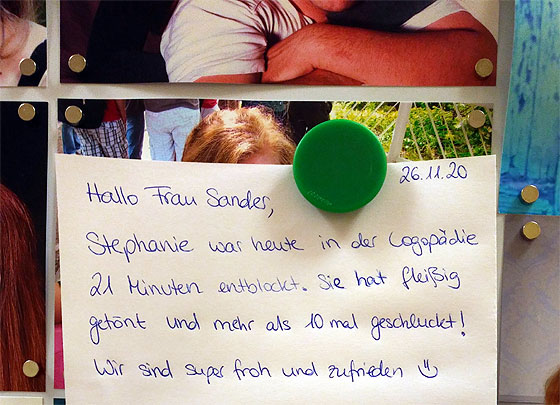 26.11.20
Hallo Frau Sander,
Stephanie war heute in der Logopädie
21 Minuten entblockt. Sie hat fleißig
getönt und mehr als 10 mal geschluckt!
Wir sind super froh und zufrieden ☺